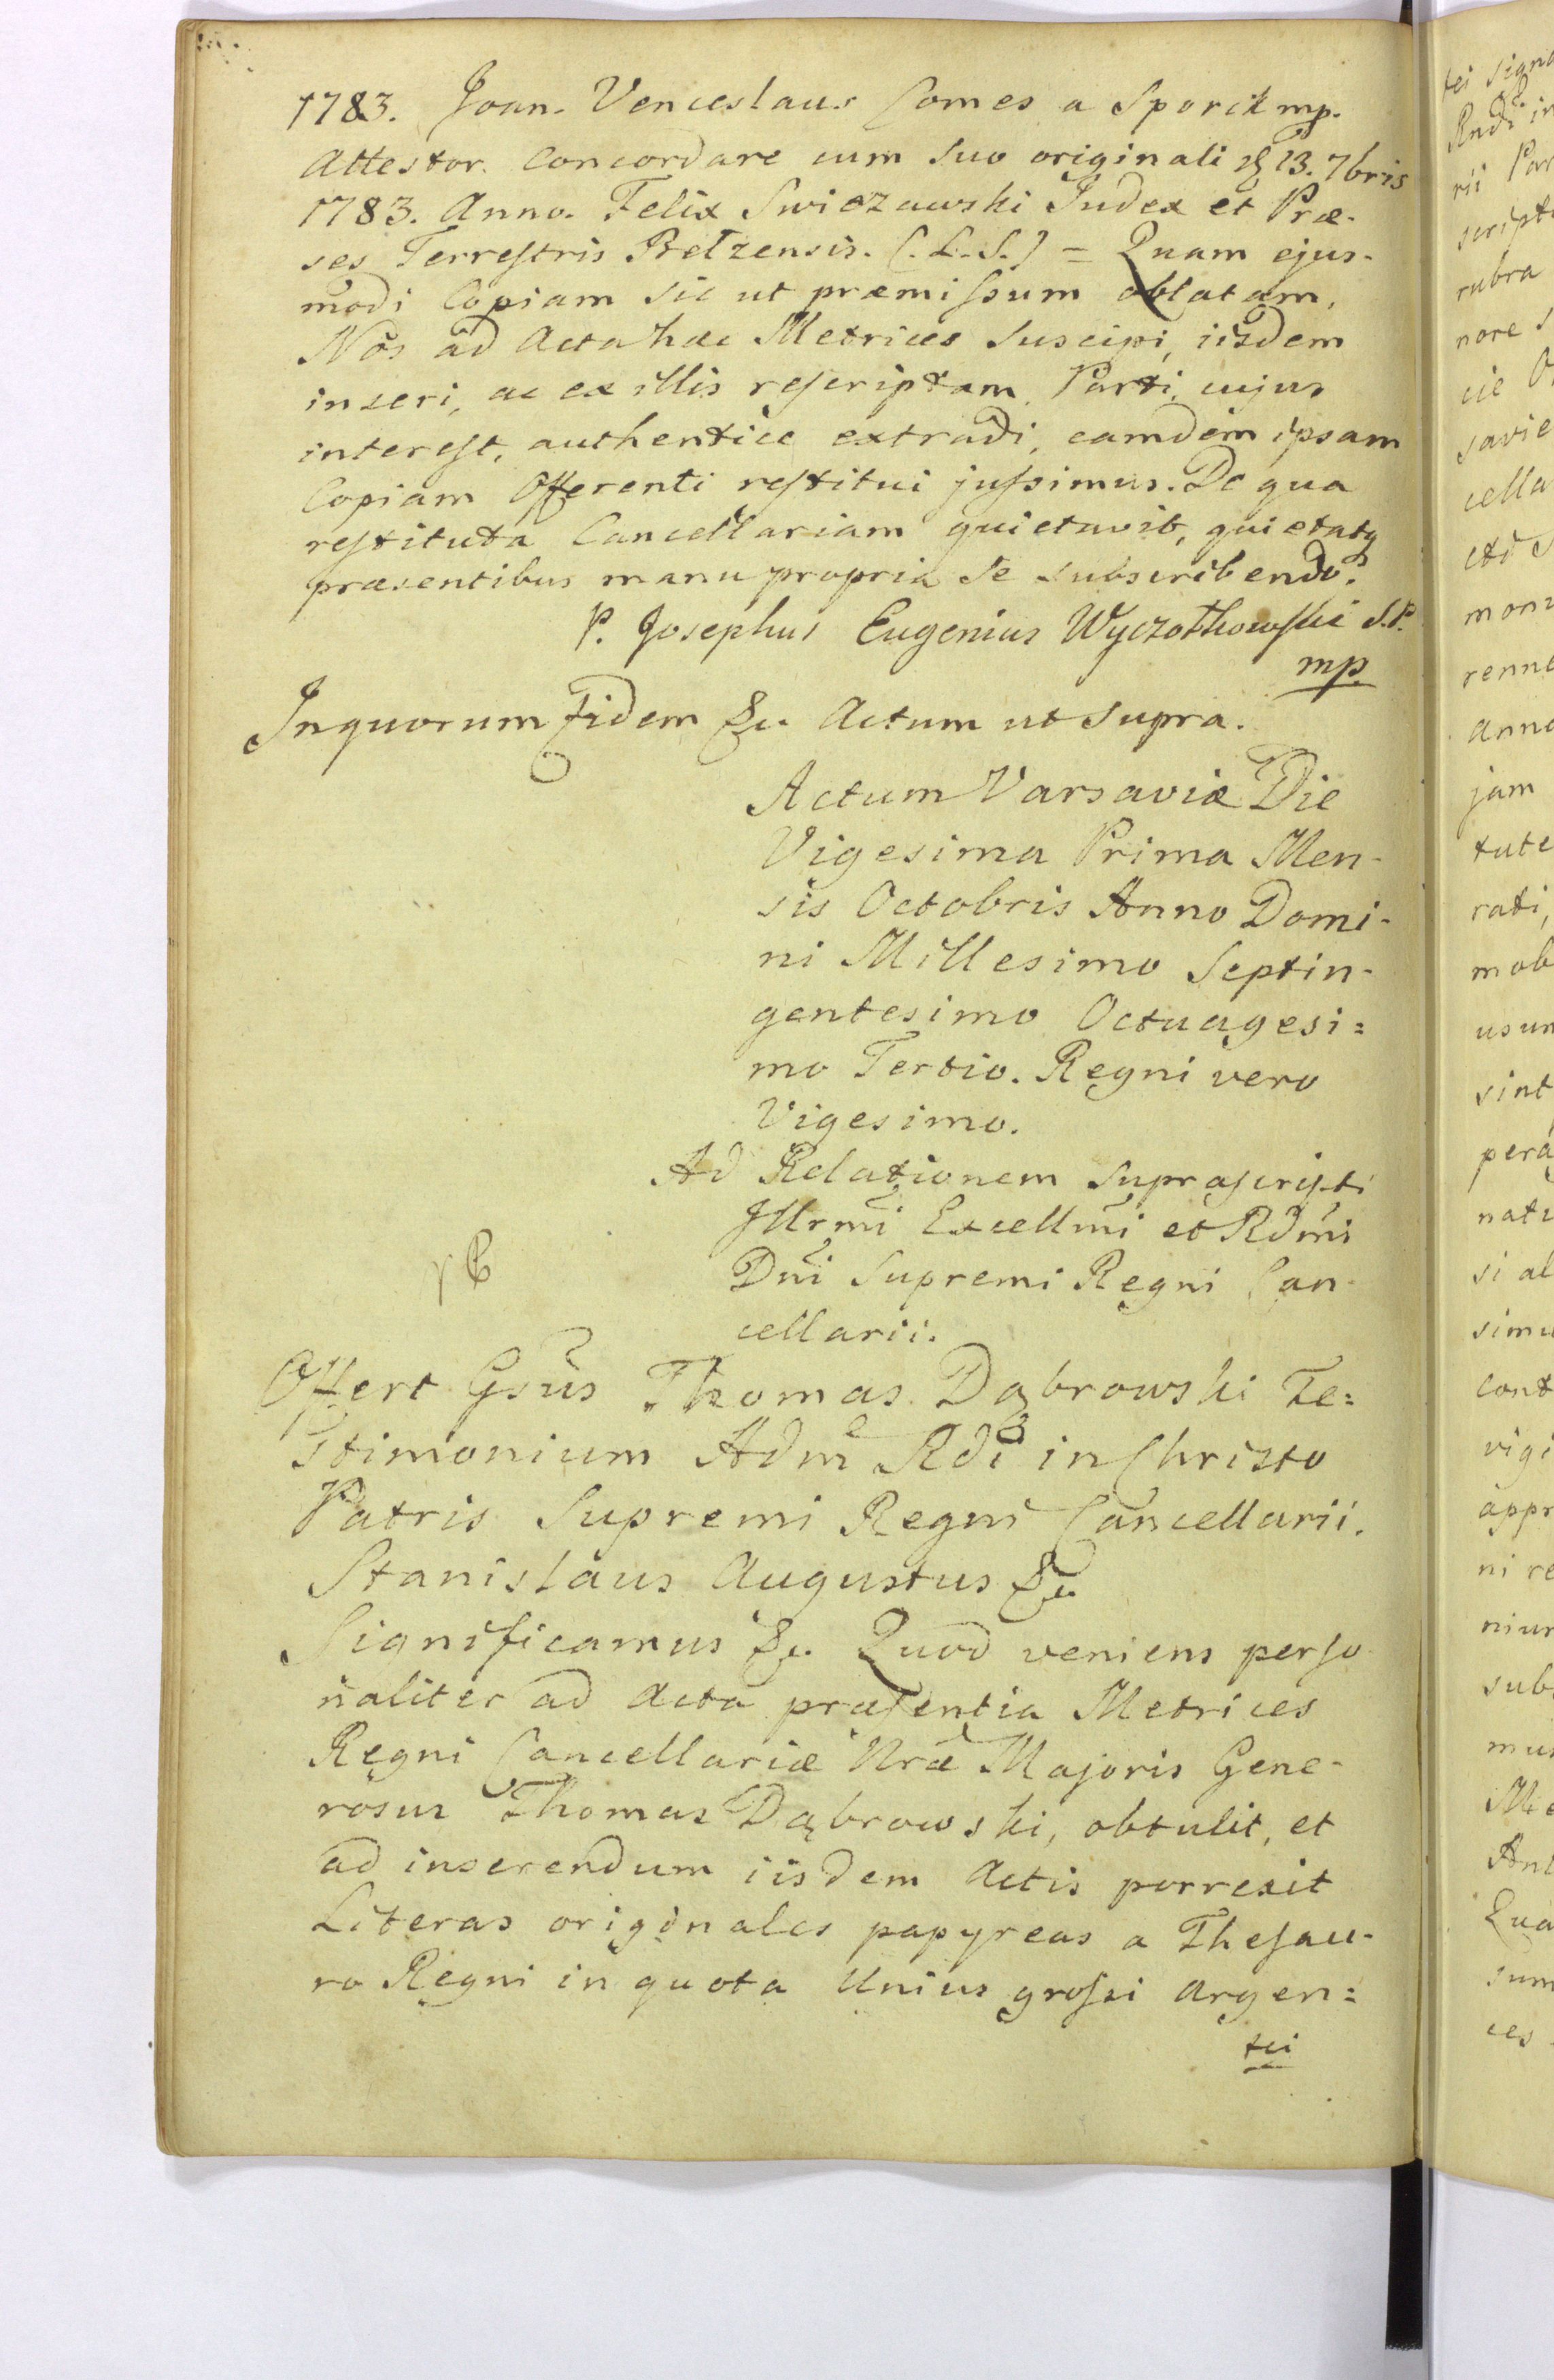 1783. Joan. Venceslaus Comes a Sporck mp.
Attestor. Concordare cum suo originali 13. 7bris
1783. Anno. Felix Swiezawski Judex et Præ-
ses Terrestris Belzensis. (.L.S.) = Quam ejus-
modi Copiam sic ut præmissum oblatam,
Nos ad Acta hæc Metrices suscipi, iisdem
inseri, ac ex illis rescriptam Parti, cujus
interest, authentice extradi, eamdem ipsam
Copiam Offerenti restitui jussimus. De qua
restituta Cancellariam quietavit, quietatq
præsentibus manu propria se subscribendo.
P. Josephus Eugenius Wyczołkowski S.P.
mp.
In quorum fidem &c. Actum ut supra.
Actum Varsaviæ Die
Vigesima Prima Men-
sis Octobris Anno Domi-
ni Millesimo Septin-
gentesimo Octuagesi=
mo Tertio. Regni vero
Vigesimo.
Ad Relationem suprascripti
Illrmi Excellmi et Rdmi
Dni Supremi Regni Can-
cellarii.
Offert Gsus Thomas Dąbrowski Te=
stimonium Adm Rdi in Christo
Patris Supremi Regni Cancellarii.
Stanislaus Augustus &c
Significamus &c. Quod veniens perso
naliter ad Acta præsentia Metrices
Regni Cancellariæ Nræ Majoris Gene-
rosus Thomas Dąbrowski, obtulit, et
ad inserendum iisdem Actis porrexit
Literas originales papyreas a Thesau-
ro Regni in quota Unius grossi Argen=
tei
tei signa
Rndi in
rii Par
scripto
rubra
nore s
cie O
savie
cella
monu
renna
anno
jam
tute
rati,
mob
usum
sint
perag
natu
si al
simu
cont
vigi
appr
ni re
niur
sub
mus
Me
Ant
Qua
sum
ces